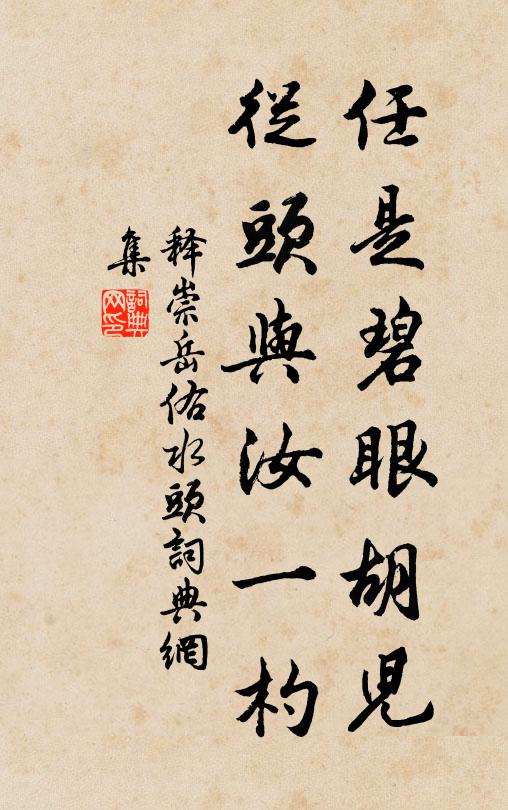 任是碧眼胡児
從頭與汝一杓
释崇岳佑水頭詞典網
集
詞典网印